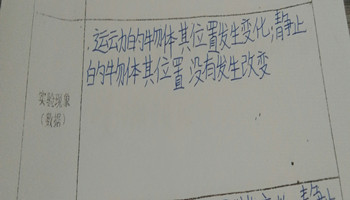 运动的物体其位置发生变化,静止
的物体其位置没有发生改变
实验现象
(数据)